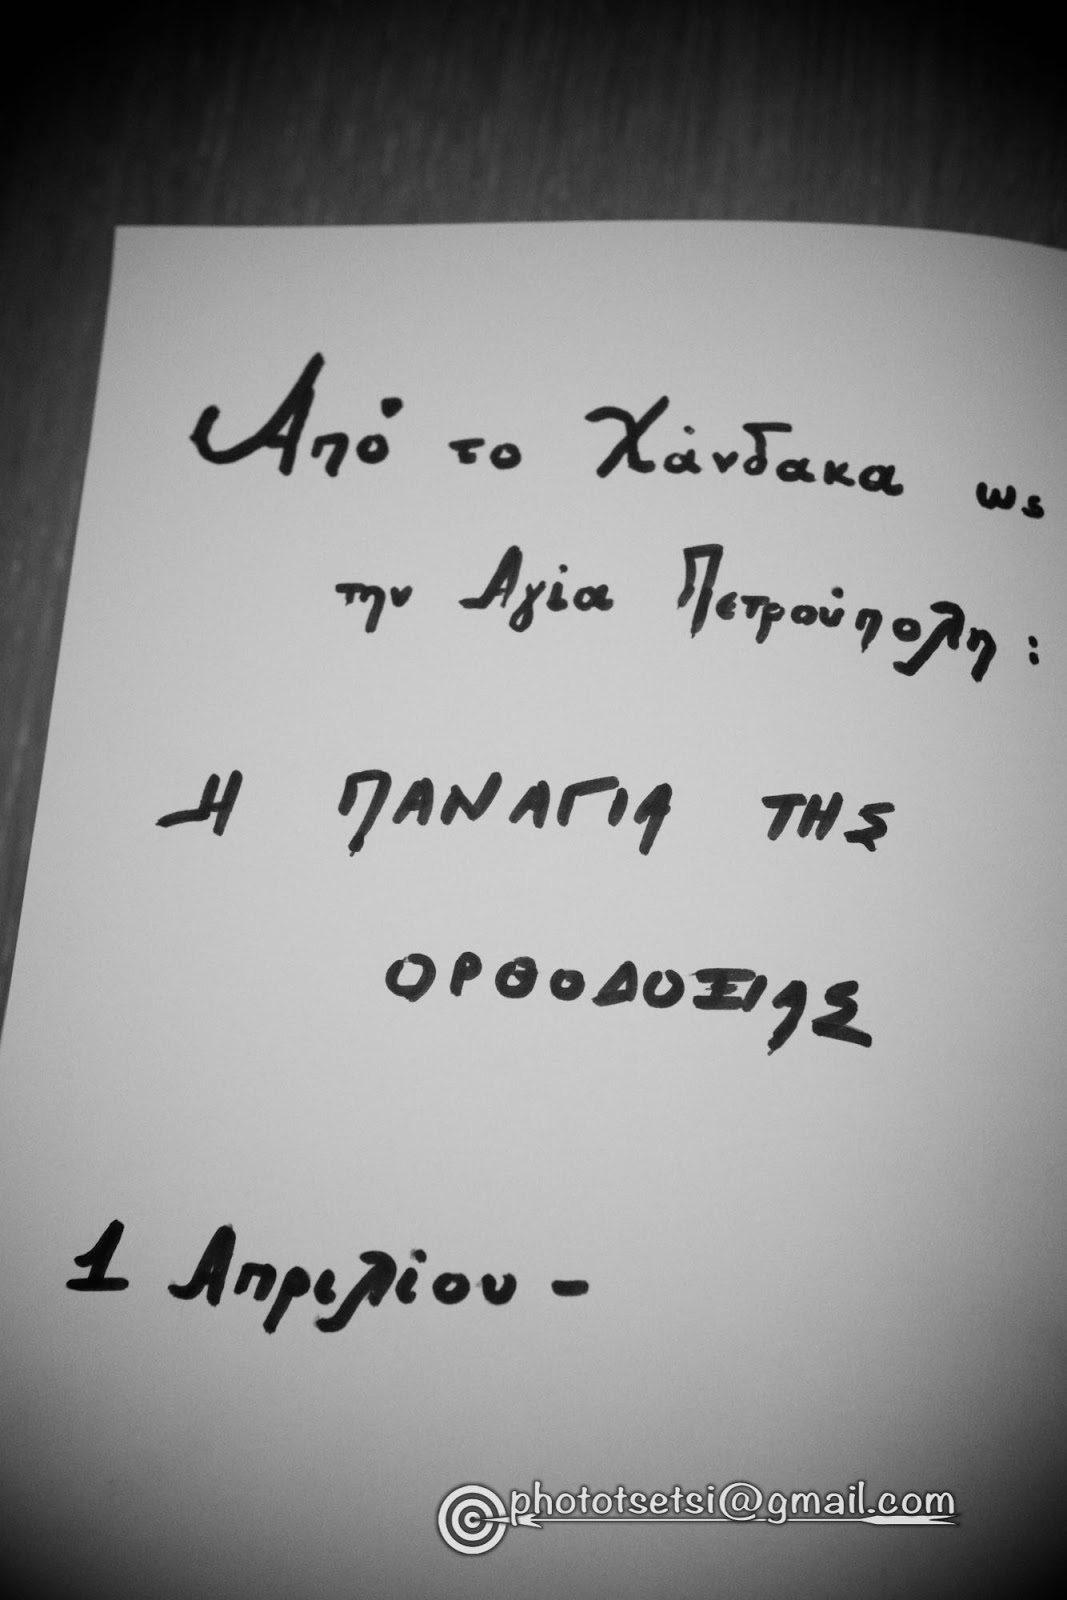 Από το Χάνδακα ως
την Αγία Πετρούπολη:
Η ΠΑΝΑΓΙΑ ΤΗΣ
ΟΡΘΟΔΟΞΙΑΣ
1 Απριλίου -
phototsetsi@gmail.com